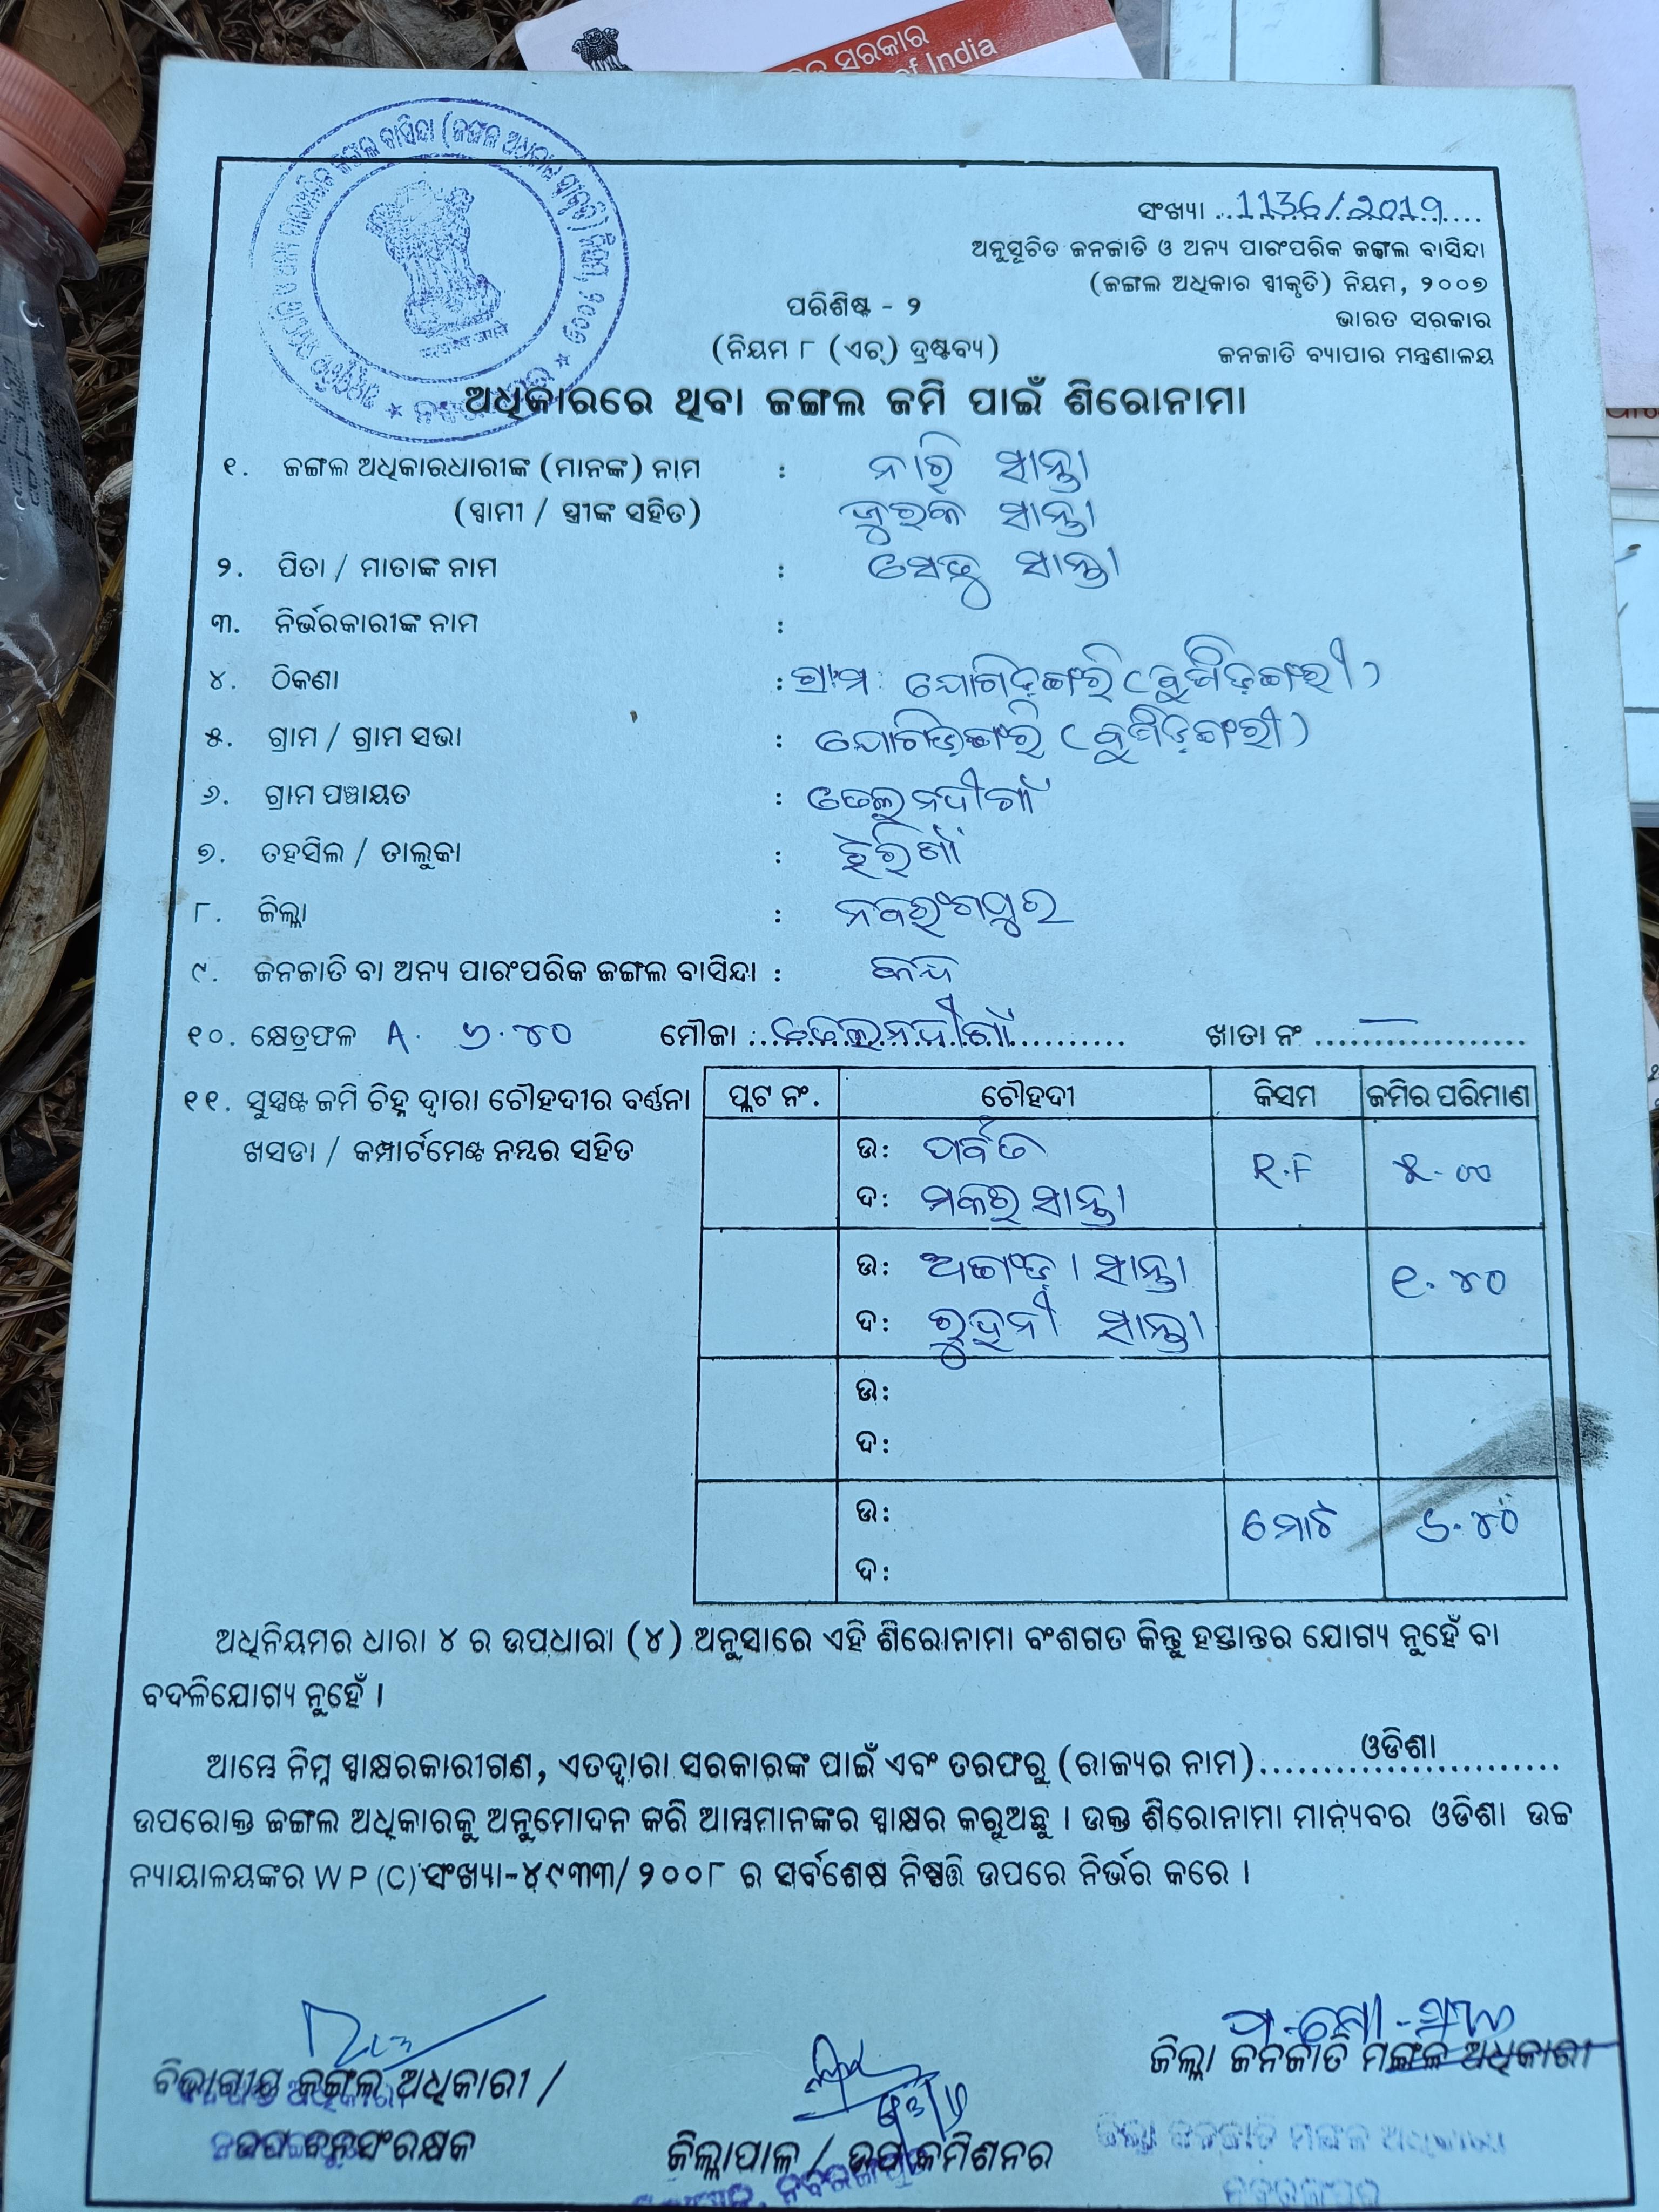 ସରକାର
of India
ସଂଖ୍ୟା ..1136/2019....
ଅନୁସୂଚିତ ଜନଜାତି ଓ ଅନ୍ୟ ପାରଂପରିକ ଜଙ୍ଗଲ ବାସିନ୍ଦା
(ଜଙ୍ଗଲ ଅଧିକାର ସ୍ୱୀକୃତି) ନିୟମ, ୨୦୦୭
ଭାରତ ସରକାର
ଜନଜାତି ବ୍ୟାପାର ମନ୍ତ୍ରଣାଳୟ
ପରିଶିଷ୍ଟ - ୨
(ନିୟମ ୮ (ଏଚ୍) ଦ୍ରଷ୍ଟବ୍ୟ)
ଅଧିକାରରେ ଥିବା ଜଙ୍ଗଲ ଜମି ପାଇଁ ଶିରୋନାମା
୧. ଜଙ୍ଗଲ ଅଧିକାରଧାରୀଙ୍କ (ମାନଙ୍କ) ନାମ : ନାରି ସାନ୍ତା
(ସ୍ୱାମୀ / ସ୍ତ୍ରୀଙ୍କ ସହିତ) ସାନ୍ତା
୨. ପିତା / ମାତାଙ୍କ ନାମ : ସାନ୍ତା
୩. ନିର୍ଭରକାରୀଙ୍କ ନାମ :
୪. ଠିକଣା : ଗ୍ରାମ
୫. ଗ୍ରାମ / ଗ୍ରାମ ସଭା :
୬. ଗ୍ରାମ ପଞ୍ଚାୟତ :
୭. ତହସିଲ / ତାଲୁକା : ଝରିଗାଁ
୮. ଜିଲ୍ଲା : ନବରଂଗପୁର
୯. ଜନଜାତି ବା ଅନ୍ୟ ପାରଂପରିକ ଜଙ୍ଗଲ ବାସିନ୍ଦା :
୧୦. କ୍ଷେତ୍ରଫଳ A. ୬.୪୦ ମୌଜା : ଖାତା ନଂ —
୧୧. ସୁସ୍ପଷ୍ଟ ଜମି ଚିହ୍ନ ଦ୍ୱାରା ଚୌହଦୀର ବର୍ଣ୍ଣନା
ଖସଡା / କମ୍ପାର୍ଟମେଣ୍ଟ ନମ୍ବର ସହିତ
ପ୍ଲଟ ନଂ. ଚୌହଦୀ କିସମ ଜମିର ପରିମାଣ
ଉ: ପର୍ବତ R.F ୫.୦୦
ଦ: ମକର ସାନ୍ତା
ଉ: ସାନ୍ତା ୧.୪୦
ଦ: ସାନ୍ତା
ଉ:
ଦ:
ଉ: ମୋଟ ୬.୪୦
ଦ:
ଅଧିନିୟମର ଧାରା ୪ ର ଉପଧାରା (୪) ଅନୁସାରେ ଏହି ଶିରୋନାମା ବଂଶଗତ କିନ୍ତୁ ହସ୍ତାନ୍ତର ଯୋଗ୍ୟ ନୁହେଁ ବା
ବଦଳିଯୋଗ୍ୟ ନୁହେଁ ।
ଆମ୍ଭେ ନିମ୍ନ ସ୍ୱାକ୍ଷରକାରୀଗଣ, ଏତଦ୍ୱାରା ସରକାରଙ୍କ ପାଇଁ ଏବଂ ତରଫରୁ (ରାଜ୍ୟର ନାମ) ଓଡିଶା
ଉପରୋକ୍ତ ଜଙ୍ଗଲ ଅଧିକାରକୁ ଅନୁମୋଦନ କରି ଆମ୍ଭମାନଙ୍କର ସ୍ୱାକ୍ଷର କରୁଅଛୁ । ଉକ୍ତ ଶିରୋନାମା ମାନ୍ୟବର ଓଡିଶା ଉଚ୍ଚ
ନ୍ୟାୟାଳୟଙ୍କର W P (C) ସଂଖ୍ୟା-୪୯୩୩/୨୦୦୮ ର ସର୍ବଶେଷ ନିଷ୍ପତ୍ତି ଉପରେ ନିର୍ଭର କରେ ।
ଜିଲ୍ଲା ଜନଜାତି ମଙ୍ଗଳ ଅଧିକାରୀ
ବିଭାଗୀୟ ଜଙ୍ଗଲ ଅଧିକାରୀ /
ଉପ ବନସଂରକ୍ଷକ
ଜିଲ୍ଲାପାଳ / ଉପ କମିଶନର
ଜିଲ୍ଲା ଜନଜାତି ମଙ୍ଗଳ ଅଧିକାରୀ